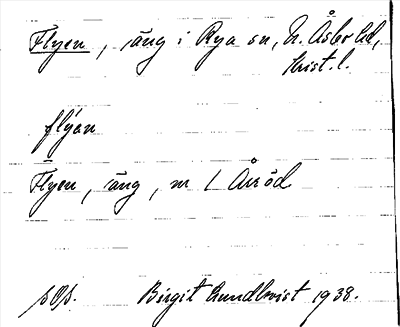 Flyen, äng i Rya sn, N. Åsbo hd,
Krist. l.
flýən
Flyen, äng, nr 1 Årröd
sOs. Birgit Lundkvist 1938.